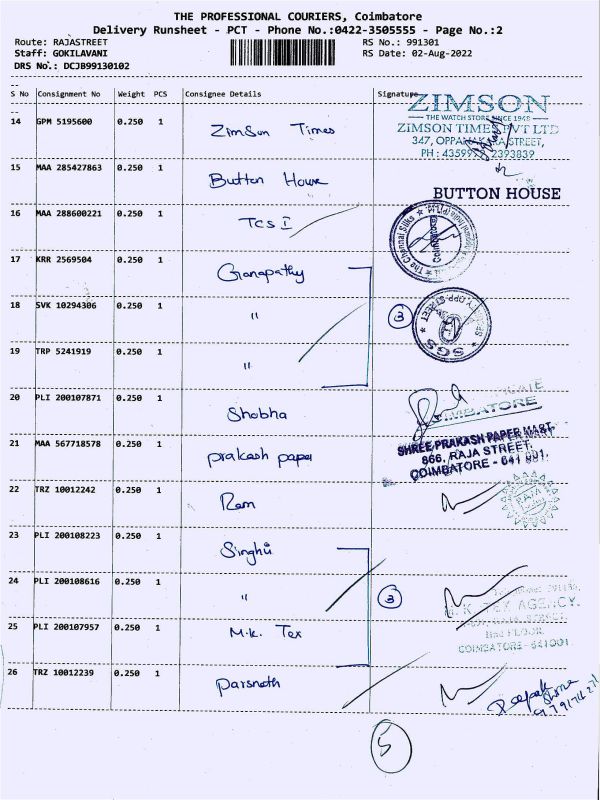 THE PROFESSIONAL COURIERS, Coimbatore
Delivery Runsheet - PCT - Phone No.:0422-3505555 - Page No.:2
Route: RAJASTREET RS No.: 991301
Staff: GOKILAVANI RS Date: 02-Aug-2022
DRS No.: DCJB99130102
S No Consignment No Weight PCS Consignee Details Signature
14 GPM 5195600 0.250 1 Zimson Times
ZIMSON
THE WATCH STORE SINCE 1948
ZIMSON TIMES PVT LTD
STREET,
2393839
15 MAA 285427863 0.250 1 Button House
BUTTON HOUSE
16 MAA 288600221 0.250 1 TCS I
The Chennai Silks
Coimbatore
17 KRR 2569504 0.250 1 Ganapathy
18 SVK 10294306 0.250 1 "
3
SGS
19 TRP 5241919 0.250 1 "
20 PLI 200107871 0.250 1 Shobha
21 MAA 567718578 0.250 1 prakash paper
SHREE PRAKASH PAPER MART.
866, RAJA STREET,
COIMBATORE - 641 001.
22 TRZ 10012242 0.250 1 Ram
23 PLI 200108223 0.250 1 Singhvi
24 PLI 200108616 0.250 1 "
3
M. K. TEX AGENCY.
IInd FLOOR
COIMBATORE-641001.
25 PLI 200107957 0.250 1 M.K. Tex
26 TRZ 10012239 0.250 1 Parsnath
Deepak
5